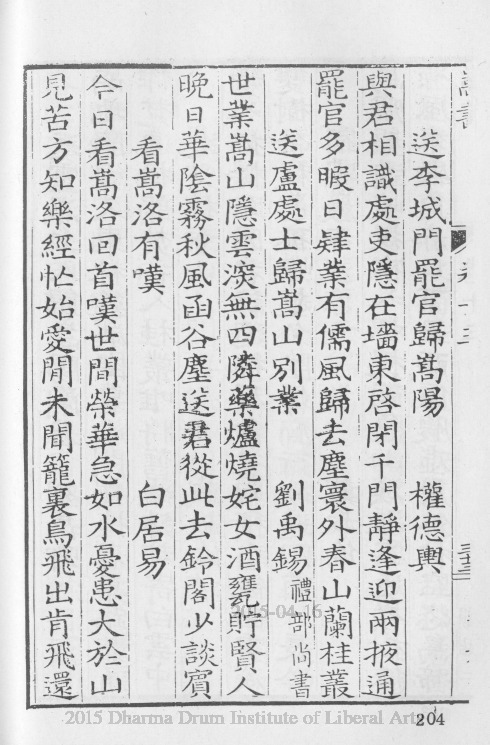 送李城門罷官歸嵩陽 權德輿
與君相識處吏隱在墻東啓閉千門靜逢迎兩掖通
罷官多暇日肄業有儒風歸去塵寰外春山蘭桂叢
送盧處士歸嵩山別業 劉禹錫 禮部尚書
世業嵩山隱雲深無四隣藥爐燒姹女酒甕貯賢人
晚日華陰霧秋風函谷塵送君從此去鈴閣少談賓
看嵩洛有嘆 白居易
今日看嵩洛回首嘆世間榮華急如水憂患大於山
見苦方知樂經忙始愛閒未聞籠裏鳥飛出肯飛還
2015-04-16
2015 Dharma Drum Institute of Liberal Arts
204